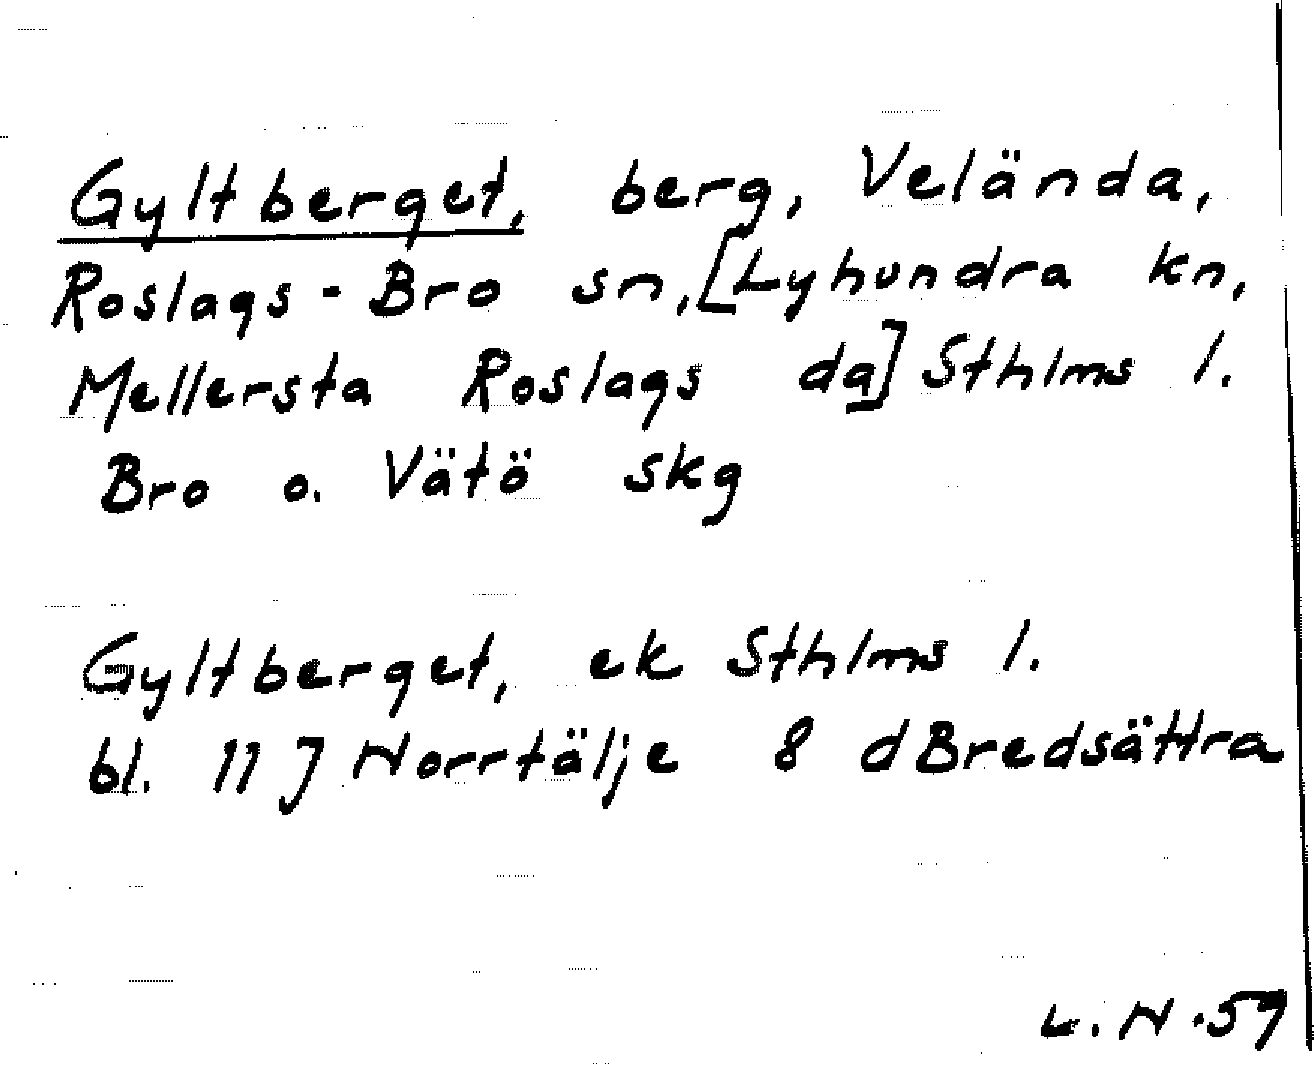 Gyltberget, berg, Velända,
Roslags-Bro sn, [Lyhundra kn,
Mellersta Roslags da] Sthlms l.
Bro o. Vätö skg
Gyltberget, ek Sthlms l.
bl. 11 J Norrtälje 8 d Bredsättra
L.N.59